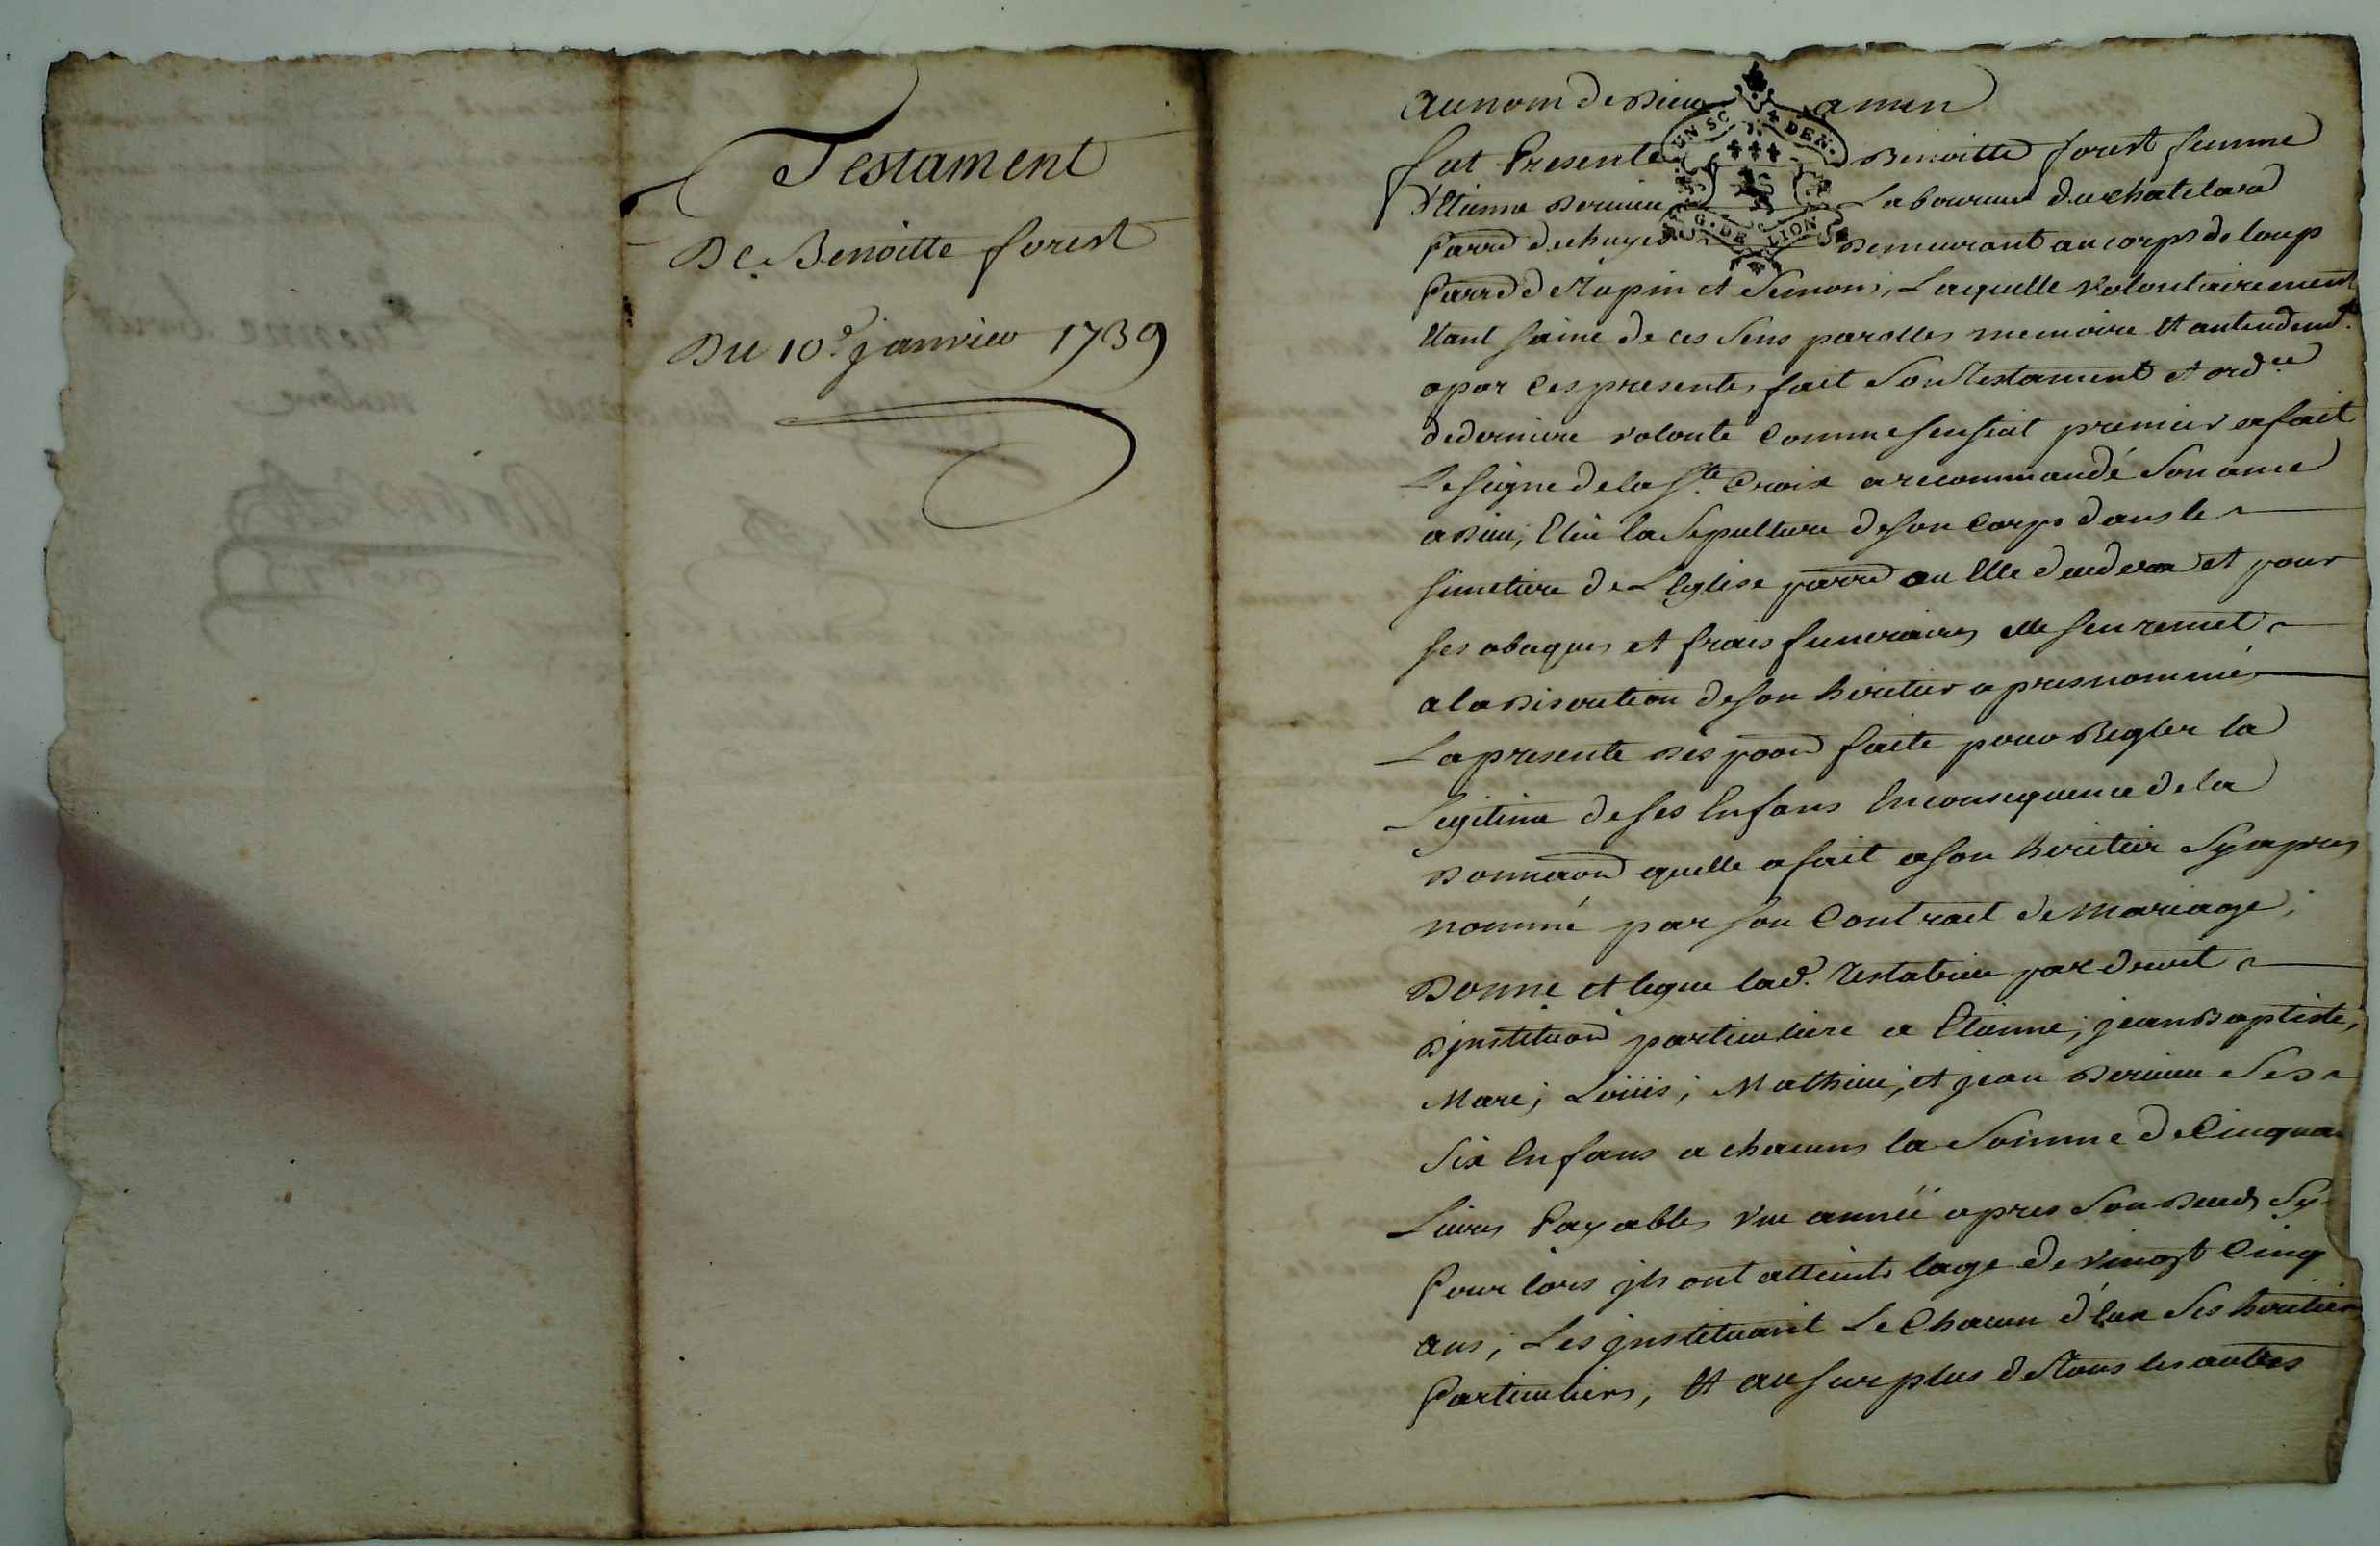 Testament
De Benoitte forest
Du 10e janvier 1739
Au nom de Dieu amen
fut Presente Benoitte forest femme
d'Etienne Laboureur du chatelard
UN SO DEN.
G. DE LION
Parre de chuyes Demeurant au corps de loup
Parre de Tupin et Semons, Laquelle volontairement
Etant saine de ces sens parolles memoire et antendemt
a par ces presentes fait son Testament et ordce
de derniere volonté comme sensuit premier a fait
Le signe de la Ste Croix a recommandé son ame
a Dieu, Elu la Sepulture de son Corps dans le
simetiere de L'Eglise parre ou Elle decedera et pour
ses obeques et frais funeraires elle sen remet
a la Discretion de son heritier apres nommé
La presente faite pour Regler la
Legitime de ses Enfans En consequence de la
Donnaon quelle a fait a son heritier sy apres
nommé par son Contract de Mariage,
Donne et legue lad. Testatrice par droit
D'jnstituon particuliere a Etienne, jean Baptiste,
Marc, Loüis, Mathieu, et jean ses
six Enfans a chacuns la somme de Cinquan
Livres Payables une anneë apres son Deceds sy
Pour lors jls ont atteints lage de vingt Cinq
ans, Les jnstituant Le Chacun d'Eux ses heritiers
Particuliers, Et au surplus de Tous les autres